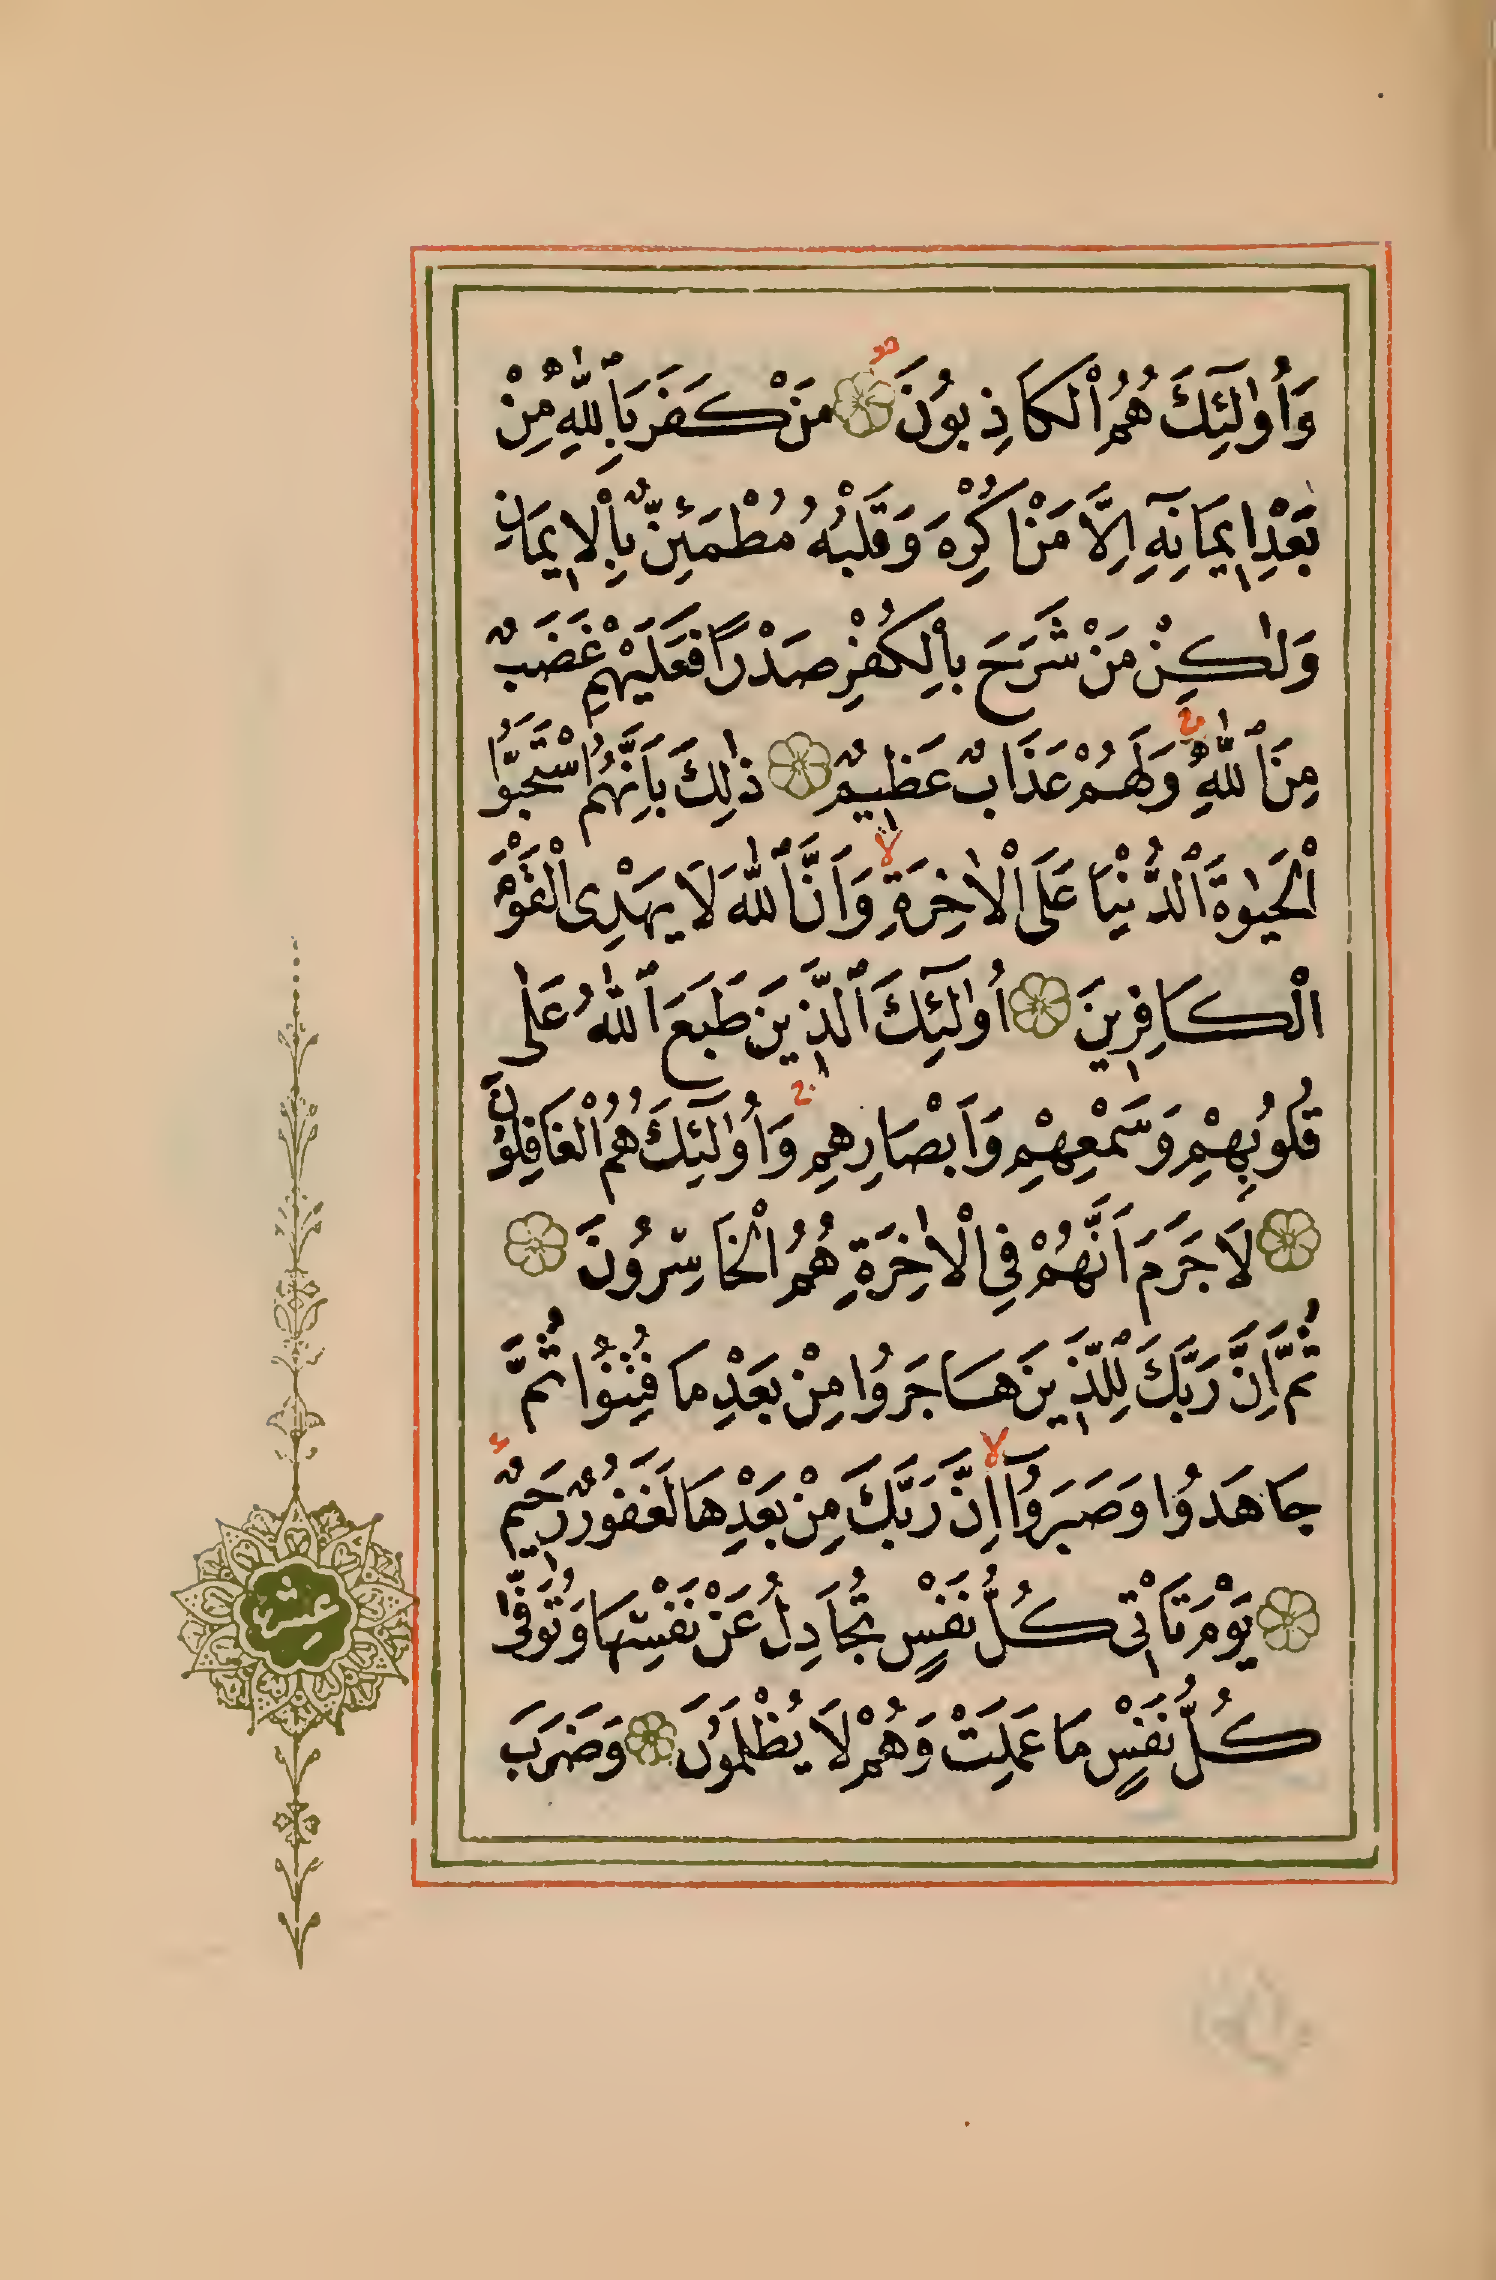 وَأُولٰٓئِكَ هُمُ الْكَاذِبُونَ مَنْ كَفَرَ بِاللّٰهِ مِنْ
بَعْدِ اِيمَانِهِٓ اِلَّا مَنْ اُكْرِهَ وَقَلْبُهُ مُطْمَئِنٌّ بِالْاِيمَانِ
وَلٰكِنْ مَنْ شَرَحَ بِالْكُفْرِ صَدْرًا فَعَلَيْهِمْ غَضَبٌ
مِنَ اللّٰهِ وَلَهُمْ عَذَابٌ عَظِيمٌ ذٰلِكَ بِاَنَّهُمُ اسْتَحَبُّوا
الْحَيٰوةَ الدُّنْيَا عَلَى الْاٰخِرَةِ وَاَنَّ اللّٰهَ لَا يَهْدِى الْقَوْمَ
الْكَافِرِينَ أُولٰٓئِكَ الَّذِينَ طَبَعَ اللّٰهُ عَلٰى
قُلُوبِهِمْ وَسَمْعِهِمْ وَاَبْصَارِهِمْ وَأُولٰٓئِكَ هُمُ الْغَافِلُونَ
لَا جَرَمَ اَنَّهُمْ فِى الْاٰخِرَةِ هُمُ الْخَاسِرُونَ
ثُمَّ اِنَّ رَبَّكَ لِلَّذِينَ هَاجَرُوا مِنْ بَعْدِ مَا فُتِنُوا ثُمَّ
جَاهَدُوا وَصَبَرُوٓا اِنَّ رَبَّكَ مِنْ بَعْدِهَا لَغَفُورٌ رَحِيمٌ
يَوْمَ تَاْتِى كُلُّ نَفْسٍ تُجَادِلُ عَنْ نَفْسِهَا وَتُوَفّٰى
كُلُّ نَفْسٍ مَا عَمِلَتْ وَهُمْ لَا يُظْلَمُونَ وَضَرَبَ